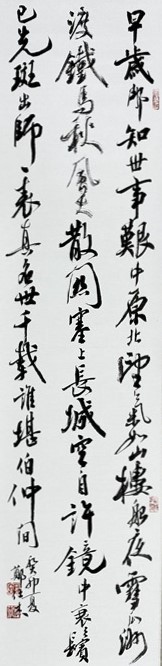 早歲那知世事艱中原北望氣如山樓船夜雪瓜洲
渡鐵馬秋風大散關塞上長城空自許鏡中衰鬢
已先斑出師一表真名世千載誰堪伯仲間
癸卯夏
鄭